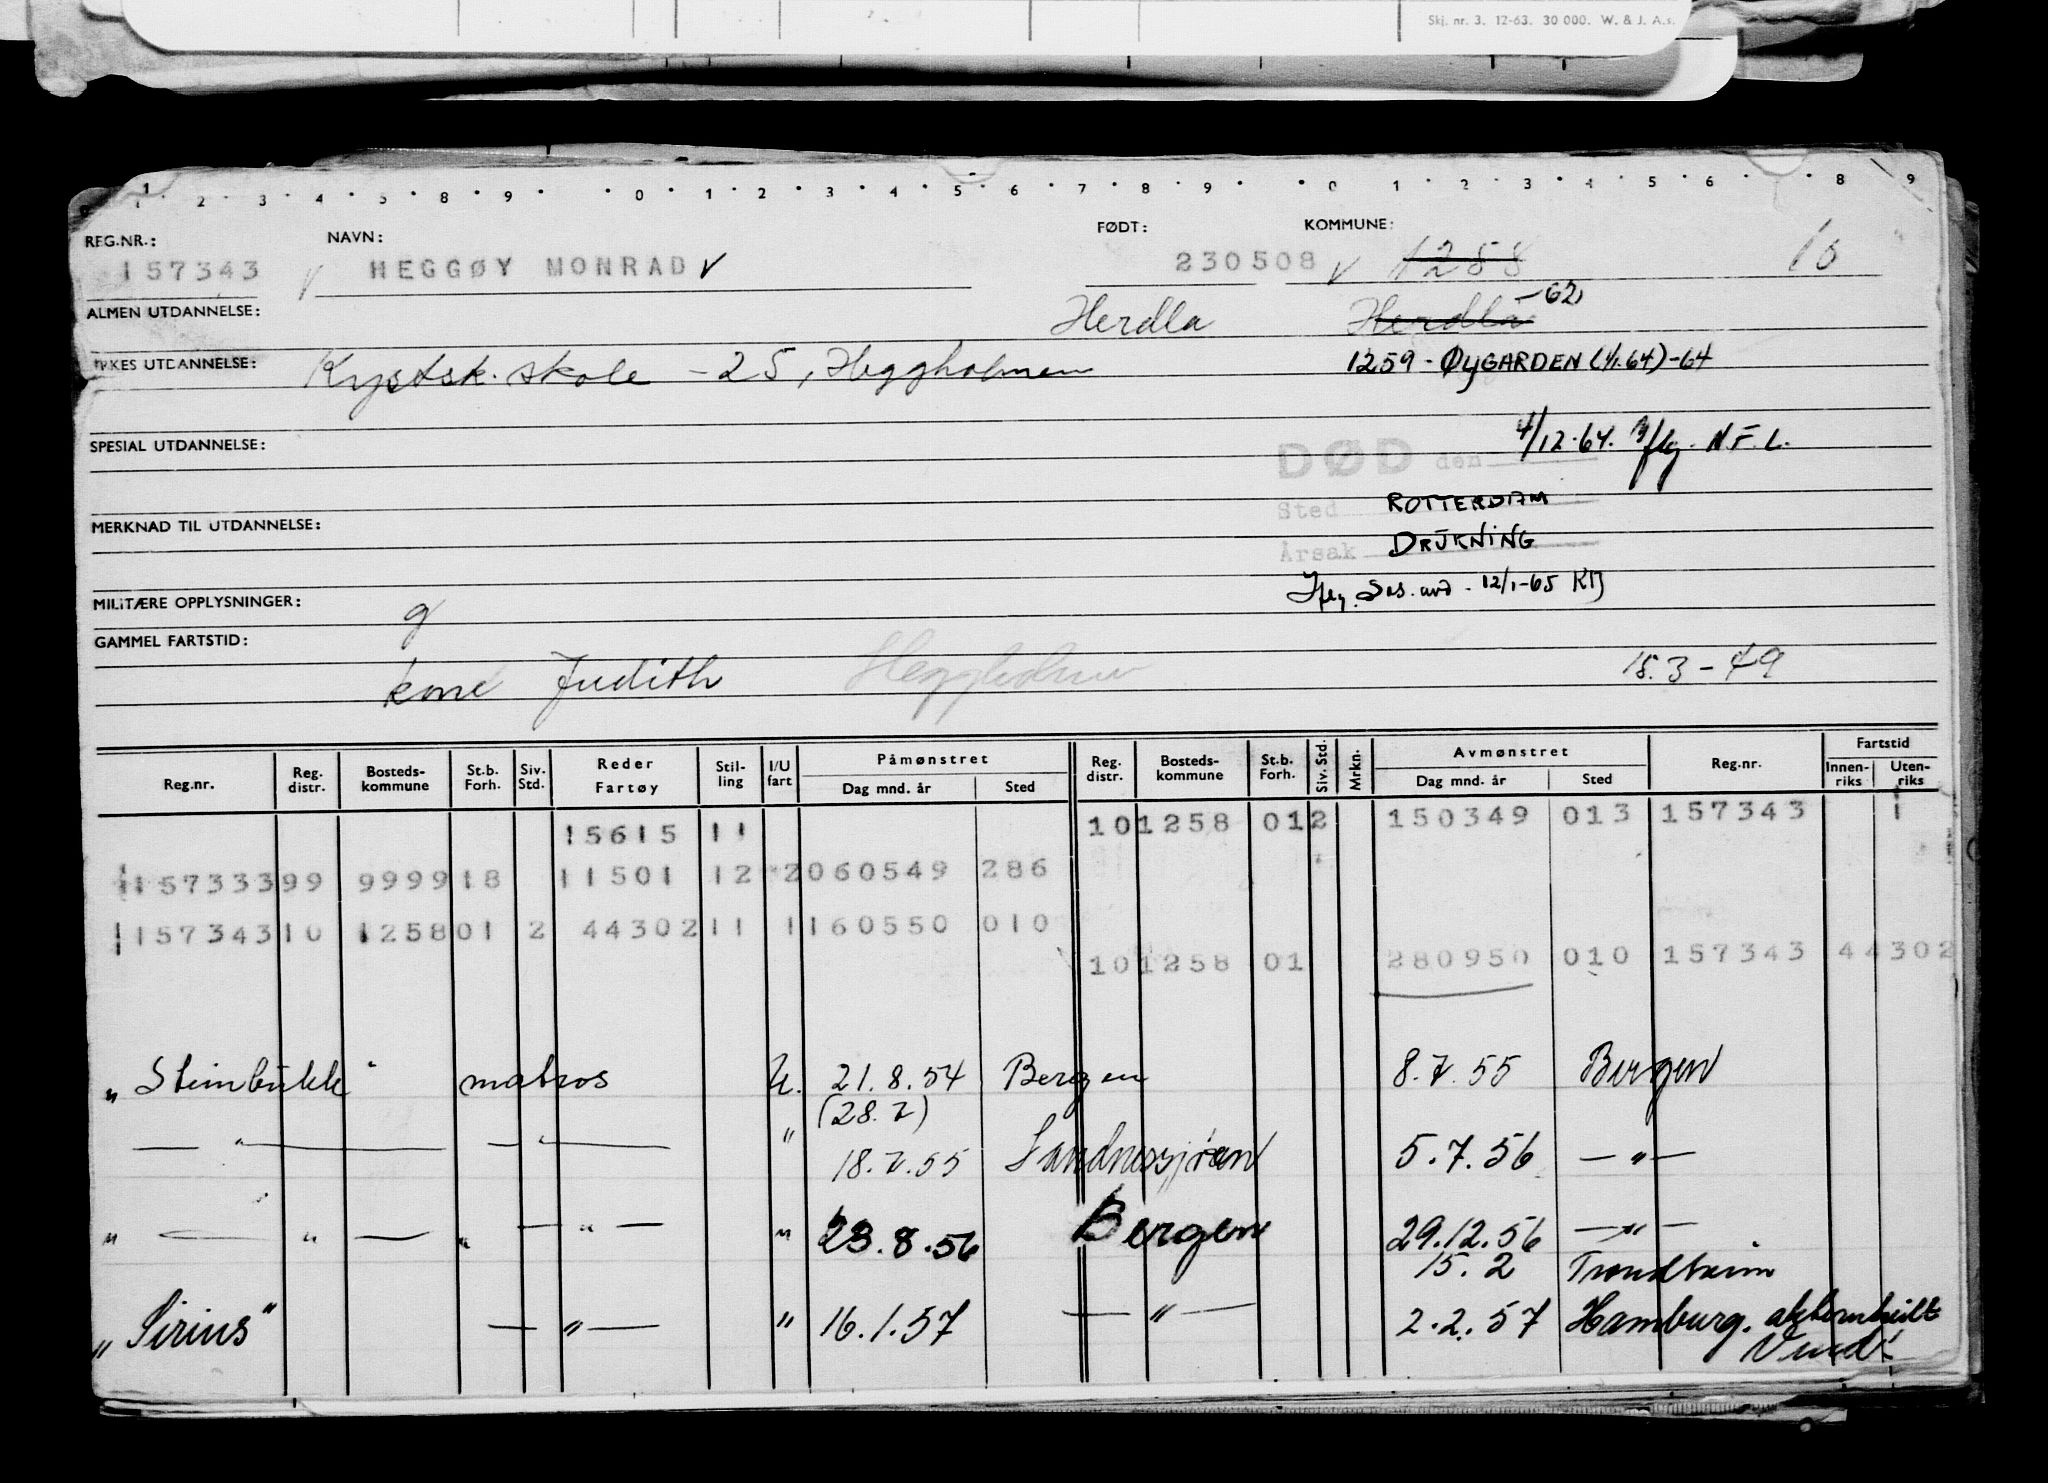 Skj. nr. 3. 12-63. 30 000. W. & J. A.s.
1 2 3 4 5 8 9 0 1 2 3 4 5 6 7 8 9 0 1 2 3 4 5 6 8 9
REG.NR.: NAVN: FØDT: KOMMUNE:
157343 HEGGØY MONRAD 230508 1258
ALMEN UTDANNELSE: Herdla Herdla -62
YRKES UTDANNELSE: Kystsk. skole - 25, Heggholmen 1259 - ØYGARDEN (1/1.64)-64
SPESIAL UTDANNELSE: DØD den 4/12.64. N.F.L.
Sted ROTTERDAM
MERKNAD TIL UTDANNELSE:
Årsak DRUKNING
MILITÆRE OPPLYSNINGER: g 12/1-65
GAMMEL FARTSTID:
kone Judith 15.3-49
Reg.nr. Reg. distr. Bosteds-kommune St.b. Forh. Siv. Std. Reder Fartøy Stil-ling I/U fart Påmønstret Dag mnd. år Sted Reg. distr. Bosteds-kommune St.b. Forh. Siv. Std. Mrkn. Avmønstret Dag mnd. år Sted Reg.nr. Fartstid Innen-riks Uten-riks
15615 11 10 1258 01 2 150349 013 157343 1
15733399 9999 18 11501 12 2060549 286
15734310 1258 01 2 44302 11 1160550 010
10 1258 01 280950 010 157343 44302
"Steinbukk" matros U. 21.8.54 Bergen 8.7.55 Bergen
(28.7)
— " — — " — " 18.7.55 Sandnessjøen 5.7.56 — " —
" — " — " — " — " 23.8.56 Bergen 29.12.56 — " —
15.2 Trondheim
"Sirius" — " — " 16.1.57 — " — 2.2.57 Hamburg.